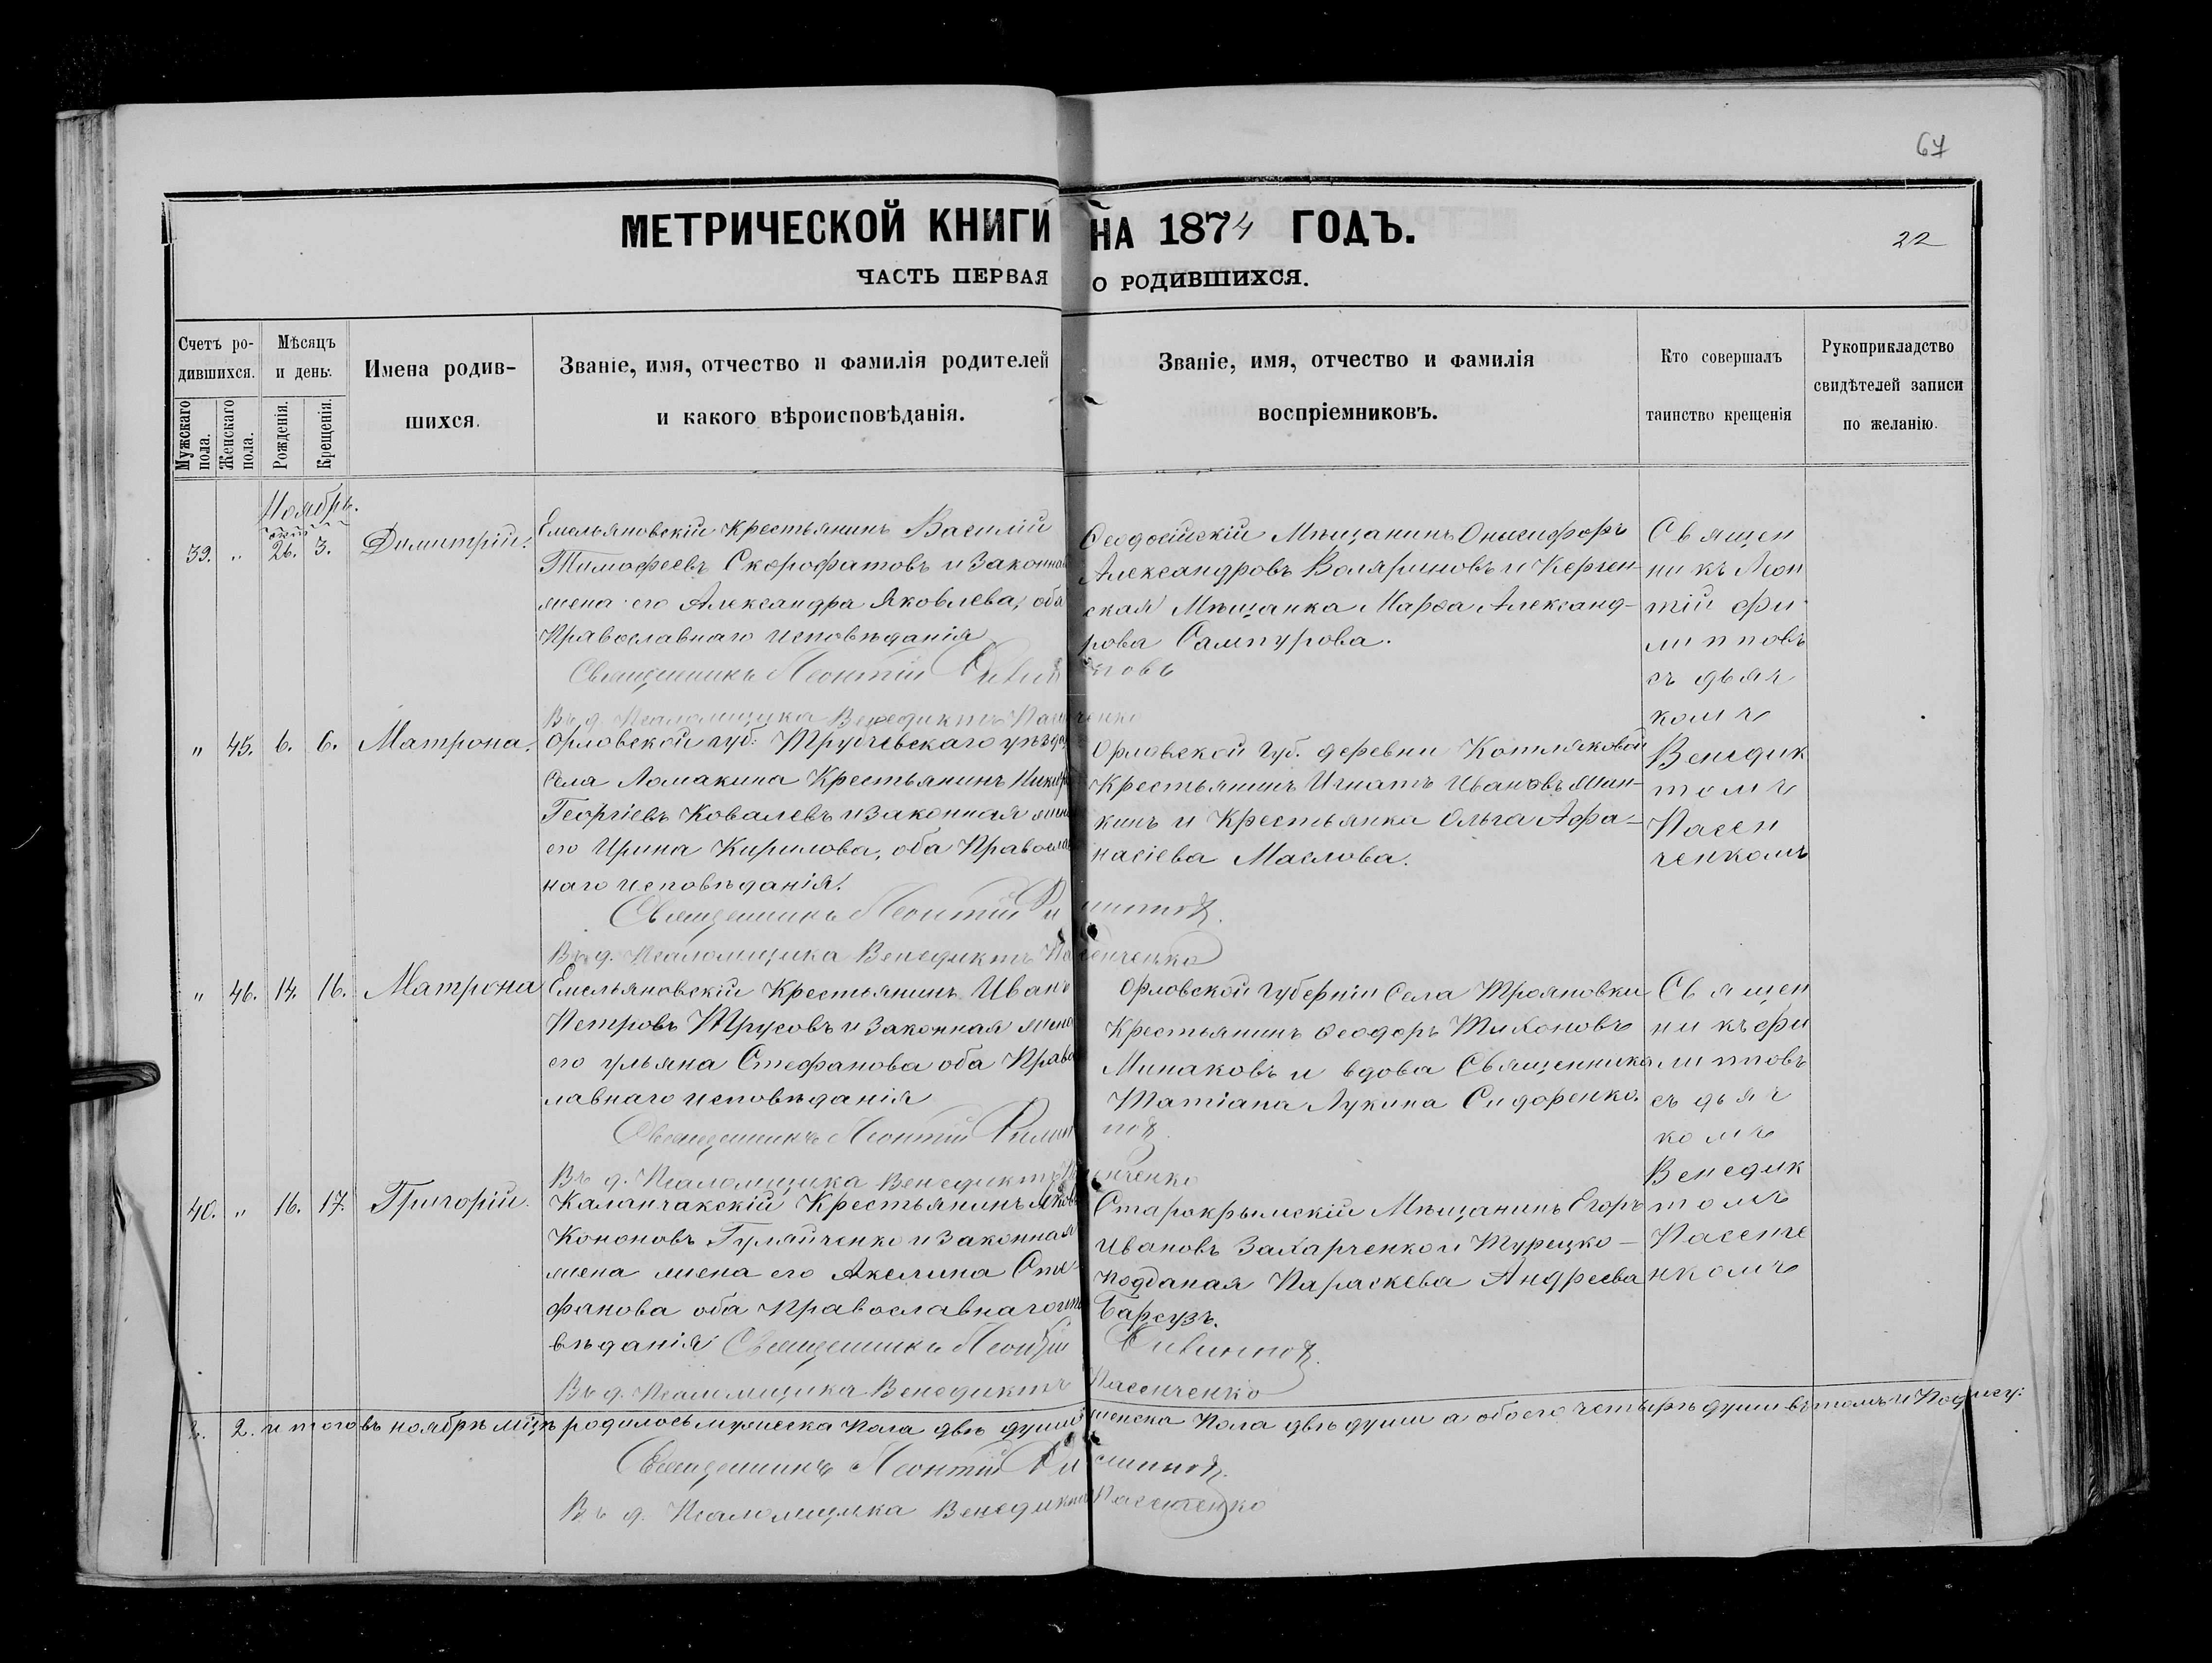 67
МЕТРИЧЕСКОЙ КНИГИ НА 1874 ГОДЪ.
22
ЧАСТЬ ПЕРВАЯ О РОДИВШИХСЯ.
Счетъ ро-
дившихся.
Мужскаго пола.
Женскаго пола.
Мѣсяцъ
и день.
Рожденія.
Крещенія.
Имена родив-
шихся.
Званіе, имя, отчество и фамилія родителей
и какого вѣроисповѣданія.
Званіе, имя, отчество и фамилія
воспріемниковъ.
Кто совершалъ
таинство крещенія
Рукоприкладство
свидѣтелей записи
по желанію.
Ноябрь.
39. " 26. 3. Димитрій.
Емельяновскій Крестьянинъ Василій
Тимофеевъ Скорофатовъ и законная
жена его Александра Яковлева, оба
Православнаго исповѣданія
Священникъ Леонтій Филипповъ
В. д. Псаломщика Венедиктъ Пасенченко
Ѳеодосійскій Мѣщанинъ Онисифоръ
Александровъ Воляриновъ и Керчен-
ская Мѣщанка Марѳа Александ-
рова Сампурова.
Священ
никъ Леон
тій Фи
липповъ
съ дьяч
комъ
Венедик
томъ
Пасен
ченкомъ
" 45. 6. 6. Матрона.
Орловской губ: Трубчевскаго уѣзда
Села Ломакина Крестьянинъ
Георгіевъ Ковалевъ и законная жена
его Ирина Кирилова, оба Православ
наго исповѣданія.
Священникъ Леонтій Филипповъ.
В. д. Псаломщика Венедиктъ Пасенченко
Орловской Губ. деревни Котляковой
Крестьянинъ Игнатъ Ивановъ Мин-
кинъ и Крестьянка Ольга Афа-
насіева Маслова.
" 46. 14. 16. Матрона
Емельяновскій Крестьянинъ Иванъ
Петровъ Трусовъ и законная жена
его Ульяна Стефанова оба Правос
лавнаго исповѣданія
Священникъ Леонтій Филипповъ
Въ д. Псаломщика Венедиктъ Пасенченко
Орловской Губерніи Села Трояновки
Крестьянинъ Ѳеодоръ Тихоновъ
Минаковъ и вдова Священника
Татіана Лукина Сидоренко.
Священ
никъ Фи
липповъ
съ дьяч
комъ
Венедик
томъ
Пасенче
нкомъ
40. " 16. 17. Григорій.
Каланчакскій Крестьянинъ Яковъ
Кононовъ Гуляйченко и законная
жена жена его Акелина Сте-
фанова оба Православнаго испо
вѣданія Священникъ Леонтій Филипповъ.
Въ д. Псаломщика Венедиктъ Пасенченко
Старокрымскій Мѣщанинъ Егоръ
Ивановъ Захарченко и Турецко-
подданая Параскева Андреева
Барсузъ.
2. 2. итого въ ноябрѣ мцѣ родилось мужеска пола двѣ души женска пола двѣ души а обоего четырѣ души въ томъ и Подпису:
Священникъ Леонтій Филипповъ.
Въ д. Псаломщика Венедиктъ Пасенченко